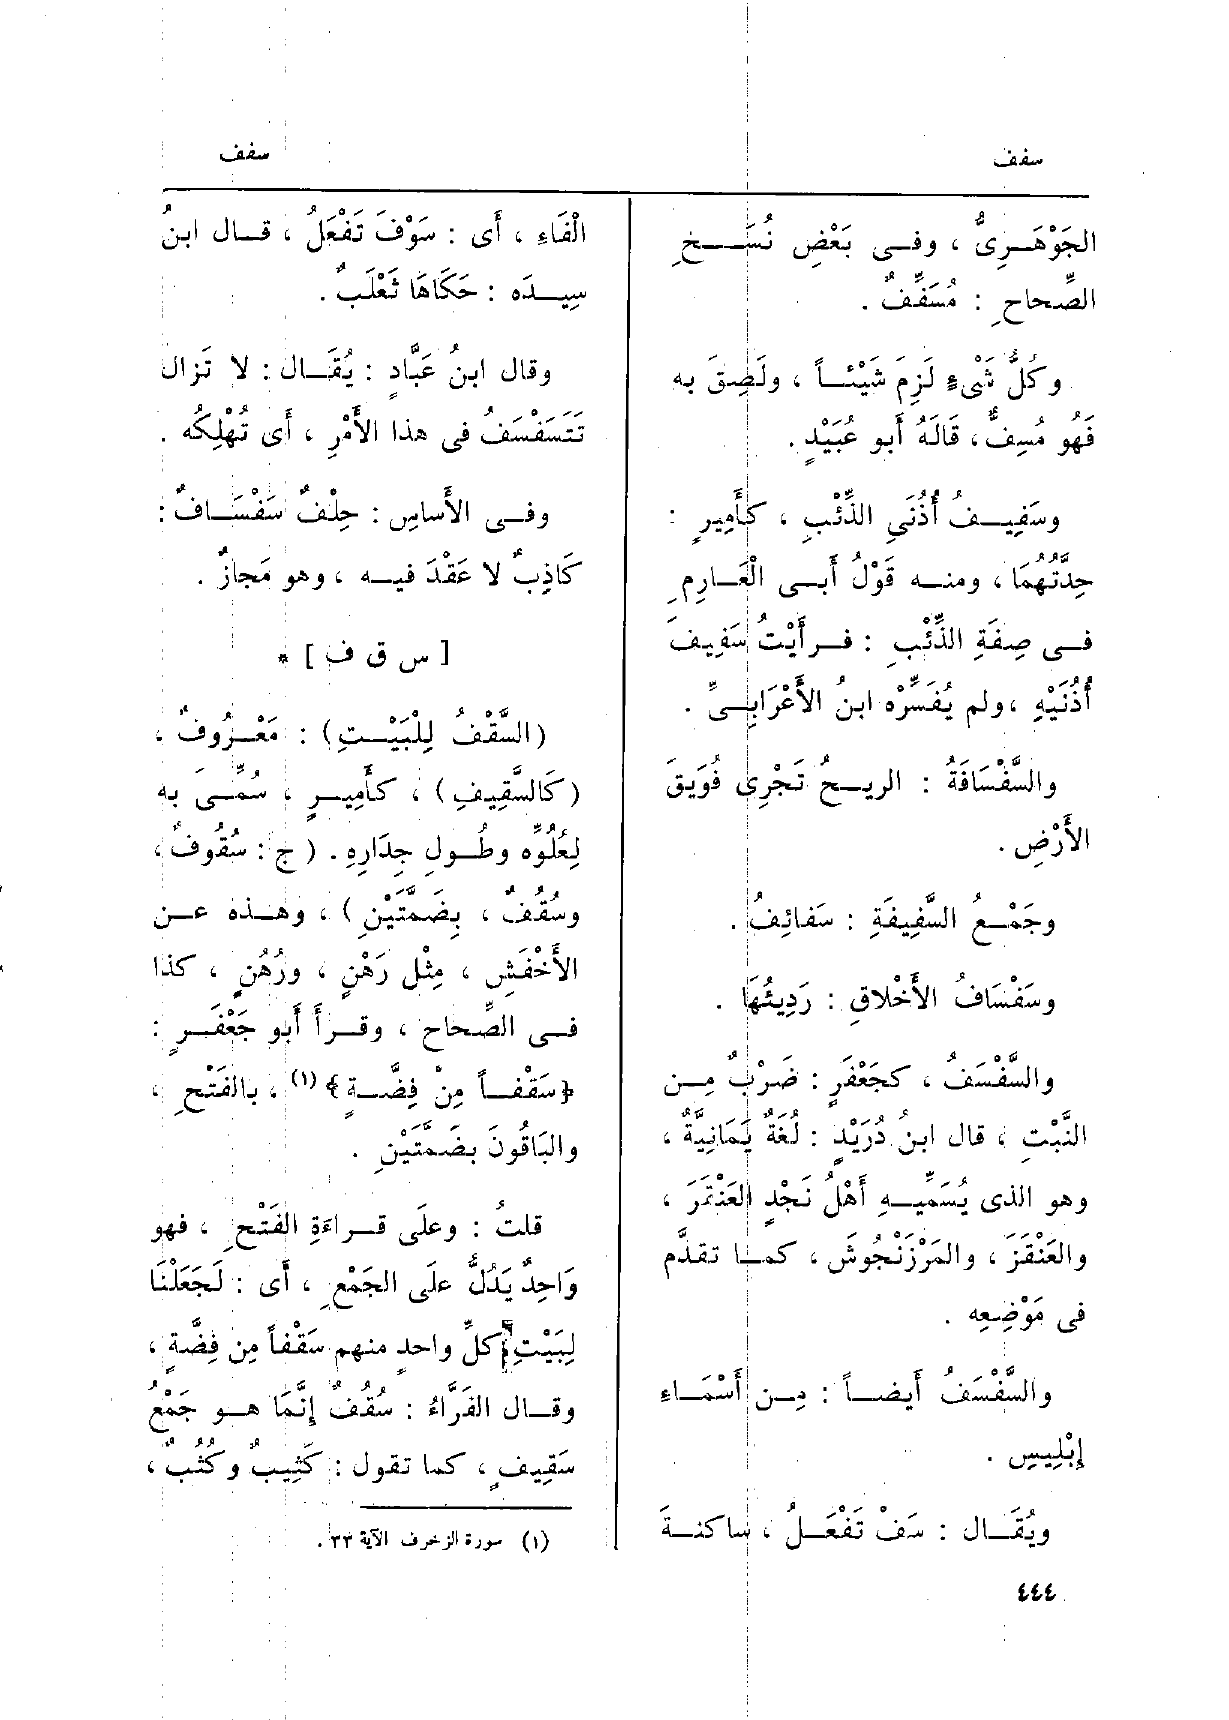 سفف
سفف
الجَوْهَرِىُّ ، وفى بَعْضِ نُسَخِ
الصِّحاحِ : مُسَفِّفٌ .
وكُلُّ شَىْءٍ لَزِمَ شَيْئاً ، ولَصِقَ به
فَهُو مُسِفٌّ، قَالَهُ أَبو عُبَيْدٍ .
وسَفِيفُ أُذُنَىِ الذِّئْبِ ، كأَمِيرٍ :
حِدَّتُهُمَا ، ومنه قَوْلُ أَبى الْعَارِمِ
فى صِفَةِ الذِّئْبِ : فرأَيْتُ سَفِيفَ
أُذُنَيْهِ ،ولم يُفَسِّرْه ابنُ الأَعْرَابِىِّ .
والسَّفْسَافَةُ : الريحُ تَجْرِى فُوَيْقَ
الأَرْضِ .
وجَمْعُ السَّفِيفَةِ : سَفائِفُ .
وسَفْسَافُ الأَخْلاقِ : رَدِيئُهَا .
والسَّفْسَفُ ، كجَعْفَرٍ : ضَرْبٌ مِن
النَّبْتِ ، قال ابنُ دُرَيْدٍ : لُغَةٌ يَمَانِيَّةٌ ،
وهو الذى يُسَمِّيهِ أَهْلُ نَجْدٍ العَنْقَزَ ،
والعَنْقَزَ ، والمَرْزَنْجُوشَ ، كما تقدَّم
فى مَوْضِعِه .
والسَّفْسَفُ أَيضاً : مِن أَسْمَاءِ
إِبْلِيسِ .
ويُقَال : سَفْ تَفْعَلُ ، ساكنةَ
الْفَاءِ ، أَى : سَوْفَ تَفْعَلُ ، قال ابنُ
سِيدَه : حَكَاهَا ثَعْلَبٌ .
وقال ابنُ عَبَّادٍ : يُقَال : لا تَزال
تَتَسَفْسَفُ فى هذا الأَمْرِ ، أَى تُهْلِكُه .
وفى الأَساسِ : حِلْفٌ سَفْسَافٌ :
كَاذِبٌ لا عَقْدَ فيه ، وهو مَجازٌ .
[ س ق ف ] *
(السَّقْفُ لِلْبَيْتِ) : مَعْرُوفٌ ،
(كَالسَّقِيفِ) ، كأَمِيرٍ ، سُمِّىَ به
لِعُلُوِّه وطُولِ جِدَارِهِ . (ج : سُقُوفٌ،
وسُقُفٌ ، بِضَمَّتَيْنِ ) ، وهذه عن
الأَخْفَشِ ، مِثْل رَهْنٍ ، ورُهُنٍ ، كذا
فى الصِّحاح ، وقرأَ أَبو جَعْفَرٍ :
﴿سَقْفاً مِنْ فِضَّةٍ﴾ (١) ، بالفَتْحِ ،
والبَاقُونَ بضَمَّتَيْنِ .
قلتُ : وعلَى قراءَةِ الفَتْحِ ، فهو
وَاحِدٌ يَدُلُّ علَى الجَمْعِ ، أَى : لَجَعَلْنَا
لِبَيْتِ كلِّ واحدٍ منهم سَقْفاً مِن فِضَّةٍ ،
وقال الفَرَّاءُ : سُقُفٌ إِنَّمَا هو جَمْعُ
سَقِيفٍ ، كما تقول : كَثِيبٌ وكُثُبٌ ،
(١) سورة الزخرف الآية ٣٣ .
٤٤٤